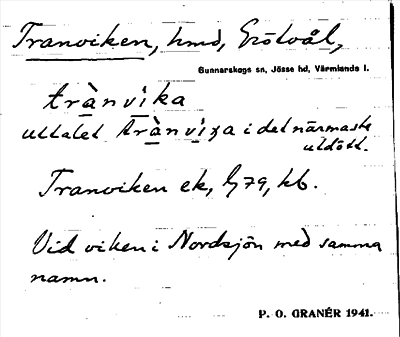 Tranviken, hmd, Grötvål,
Gunnarskogs sn, Jösse hd, Värmlands l.
trànvika
uttalet trànviʒa i det närmaste
utdött.
Tranviken ek, G 79, kb.
Vid viken i Nordsjön med samma
namn.
P. O. GRANÉR 1941.